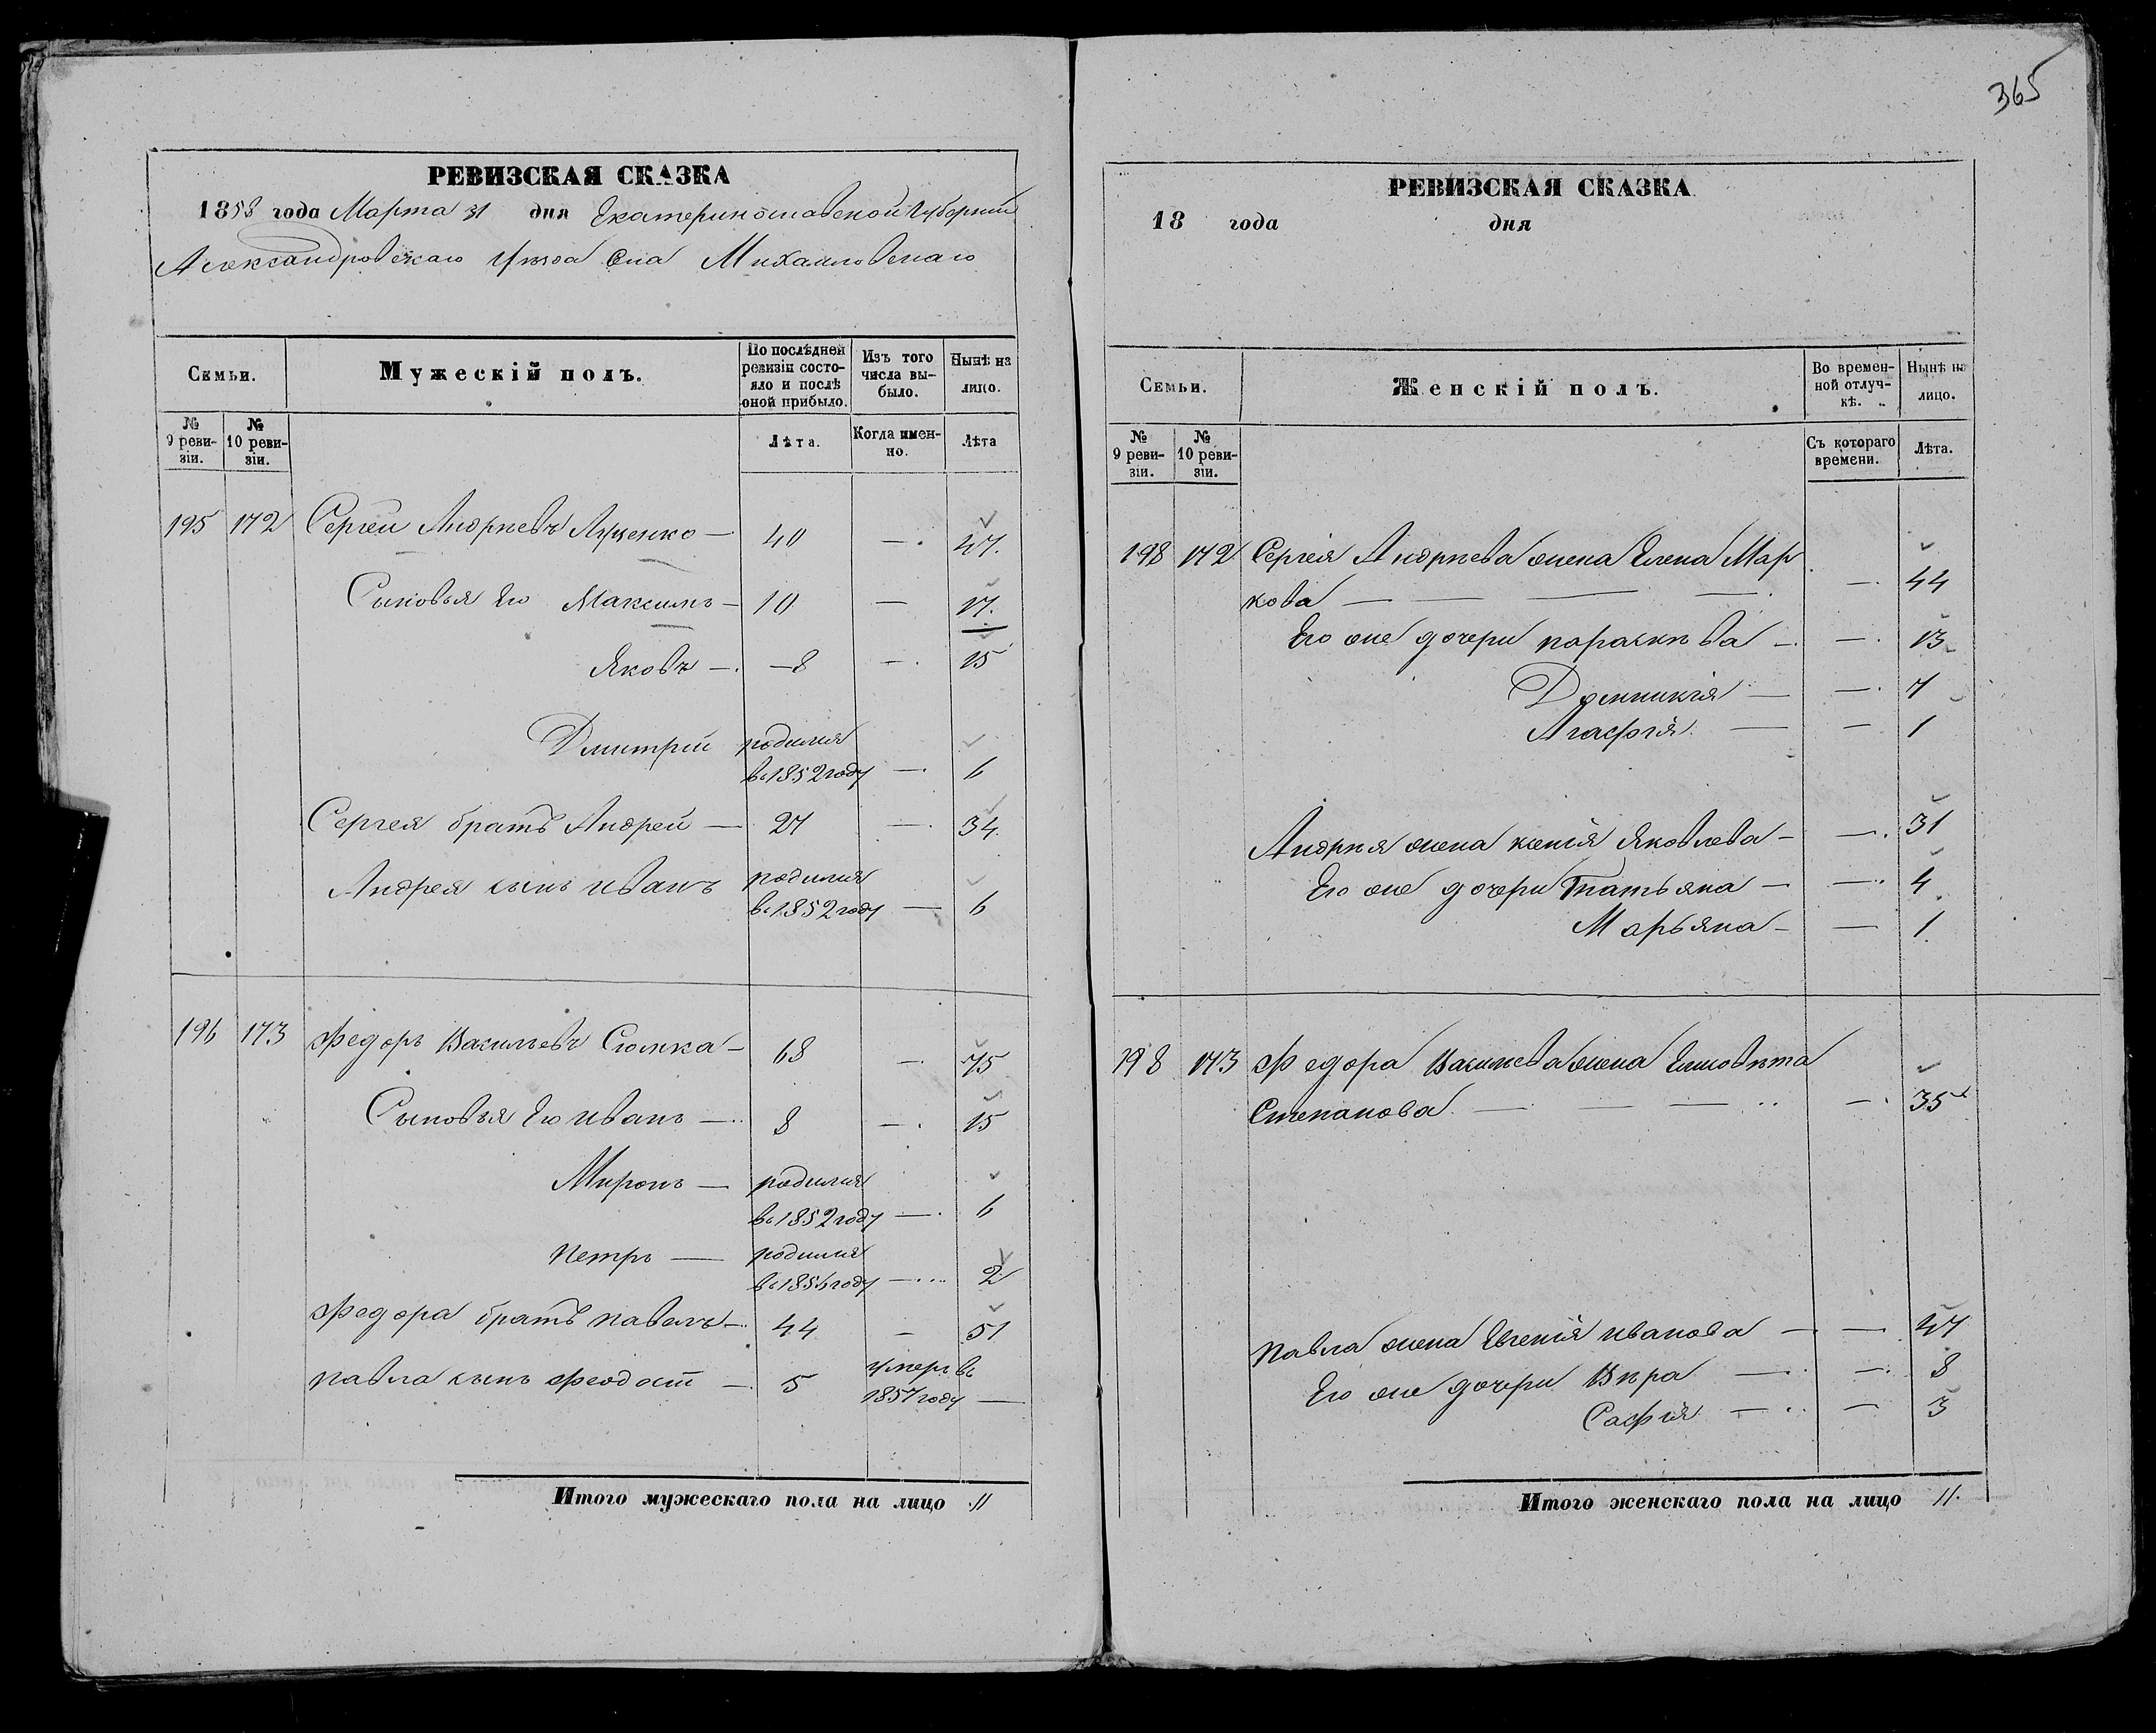 365
РЕВИЗСКАЯ СКАЗКА
1858 года Марта 31 дня Екатеринославской Губернии
Александровскаго Уѣзда Села Михайловскаго
Семьи.
Мужескій полъ.
По послѣдней ревизіи состояло и послѣ оной прибыло.
Изъ того числа выбыло.
Нынѣ на лицо.
№ 9 ревизіи.
№ 10 ревизіи.
Лѣта.
Когда именно.
Лѣта
195 172 Сергей Андреевъ Луценко — 40 — 47.
Сыновья Его Максимъ — 10 — 17.
Яковъ — 8 — 15
Дмитрій родился
въ 1852 году — 6
Сергея братъ Андрей — 27 — 34.
Андрея сынъ иванъ родился
въ 1852 году — 6
196 173 Федоръ Васильевъ Сюмка — 68 — 75
Сыновья Его иванъ — 8 — 15
Миронъ — родился
въ 1852 году — 6
петръ — родился
въ 1856 году — 2
Федора братъ павелъ — 44 — 51
павла сынъ Феодосій — 5 умеръ въ
1857 году —
Итого мужескаго пола на лицо 11
РЕВИЗСКАЯ СКАЗКА
18 года дня
Семьи.
Женскій полъ.
Во временной отлучкѣ.
Нынѣ на лицо.
№ 9 ревизіи.
№ 10 ревизіи.
Съ котораго времени.
Лѣта.
198 172 Сергія Андрѣева жена Елена Мар
кова — — 44
Его же дочери параскѣва — — 13
Домникія — — 7
Агафія — — 1
Андрѣя жена ксенія Яковлева — — 31
Его же дочери Татьяна — — 4
Марьяна — — 1.
198 173 Федора Васильева жена Елисовѣта
Степанова — — 35
павла жена Евгенія иванова — — 47
Его же дочери Вѣра — — 8
Сафія — — 3
Итого женскаго пола на лицо 11.